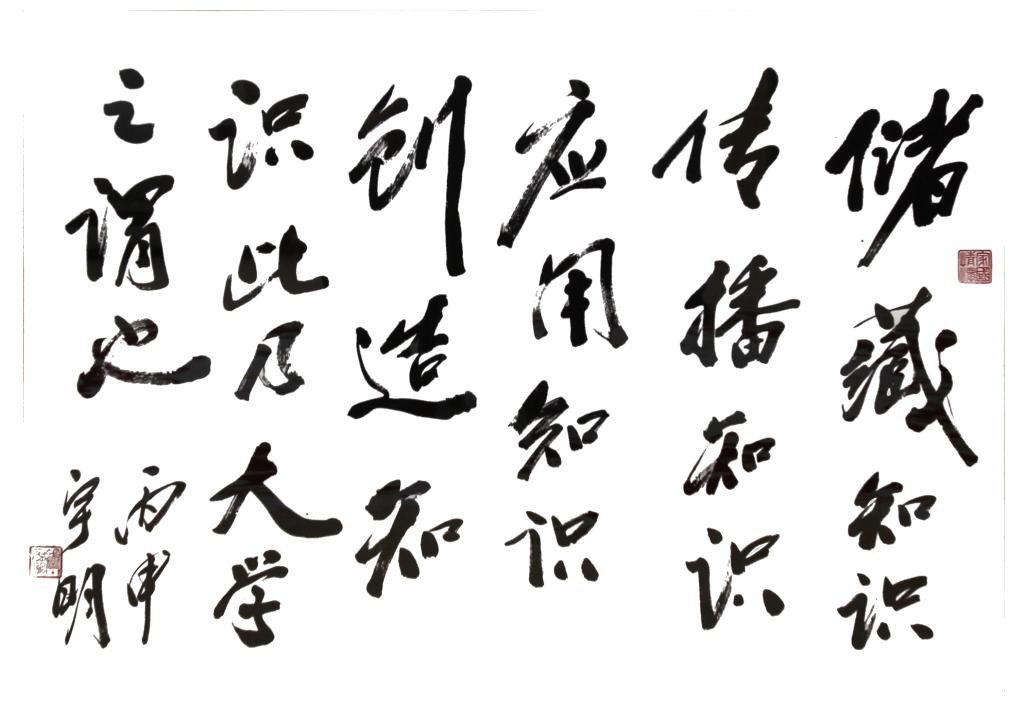 储藏知识
传播知识
应用知识
创造知
识此乃大学
之谓也
丙申
宇明